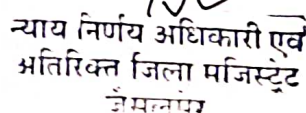 न्याय निर्णय अधिकारी एवं
अतिरिक्त जिला मजिस्ट्रेट